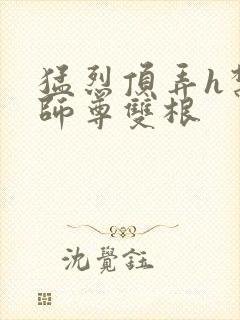 猛烈頂弄h
師尊雙根
沈覺鈺